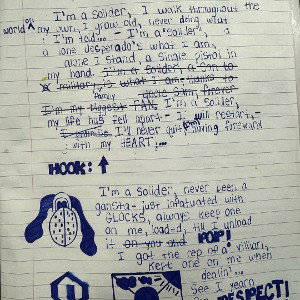 I'm a solider, I walk throughout the
world on my own, I grow old, never doing what
I'm told... - I'm a "solider",
a lone desperado's what I am,
alone I stand, a single pistol in
my hand. I'm a solider, a
military's what I am, thanks to
family Uncle Sam, forever
I'm my biggest FAN, I'm a solider,
my life has fell apart - I will restart,-
I promise. I'll never quit moving forward
with my HEART...
HOOK:
I'm a solider, never been a
gansta - just infatuated with
GLOCKS, always keep one
on me, loaded, till I unload
it on you and POP!
I got the rep of a villian,
kept one on me when
dealin'...
See I yearn
RESPECT!